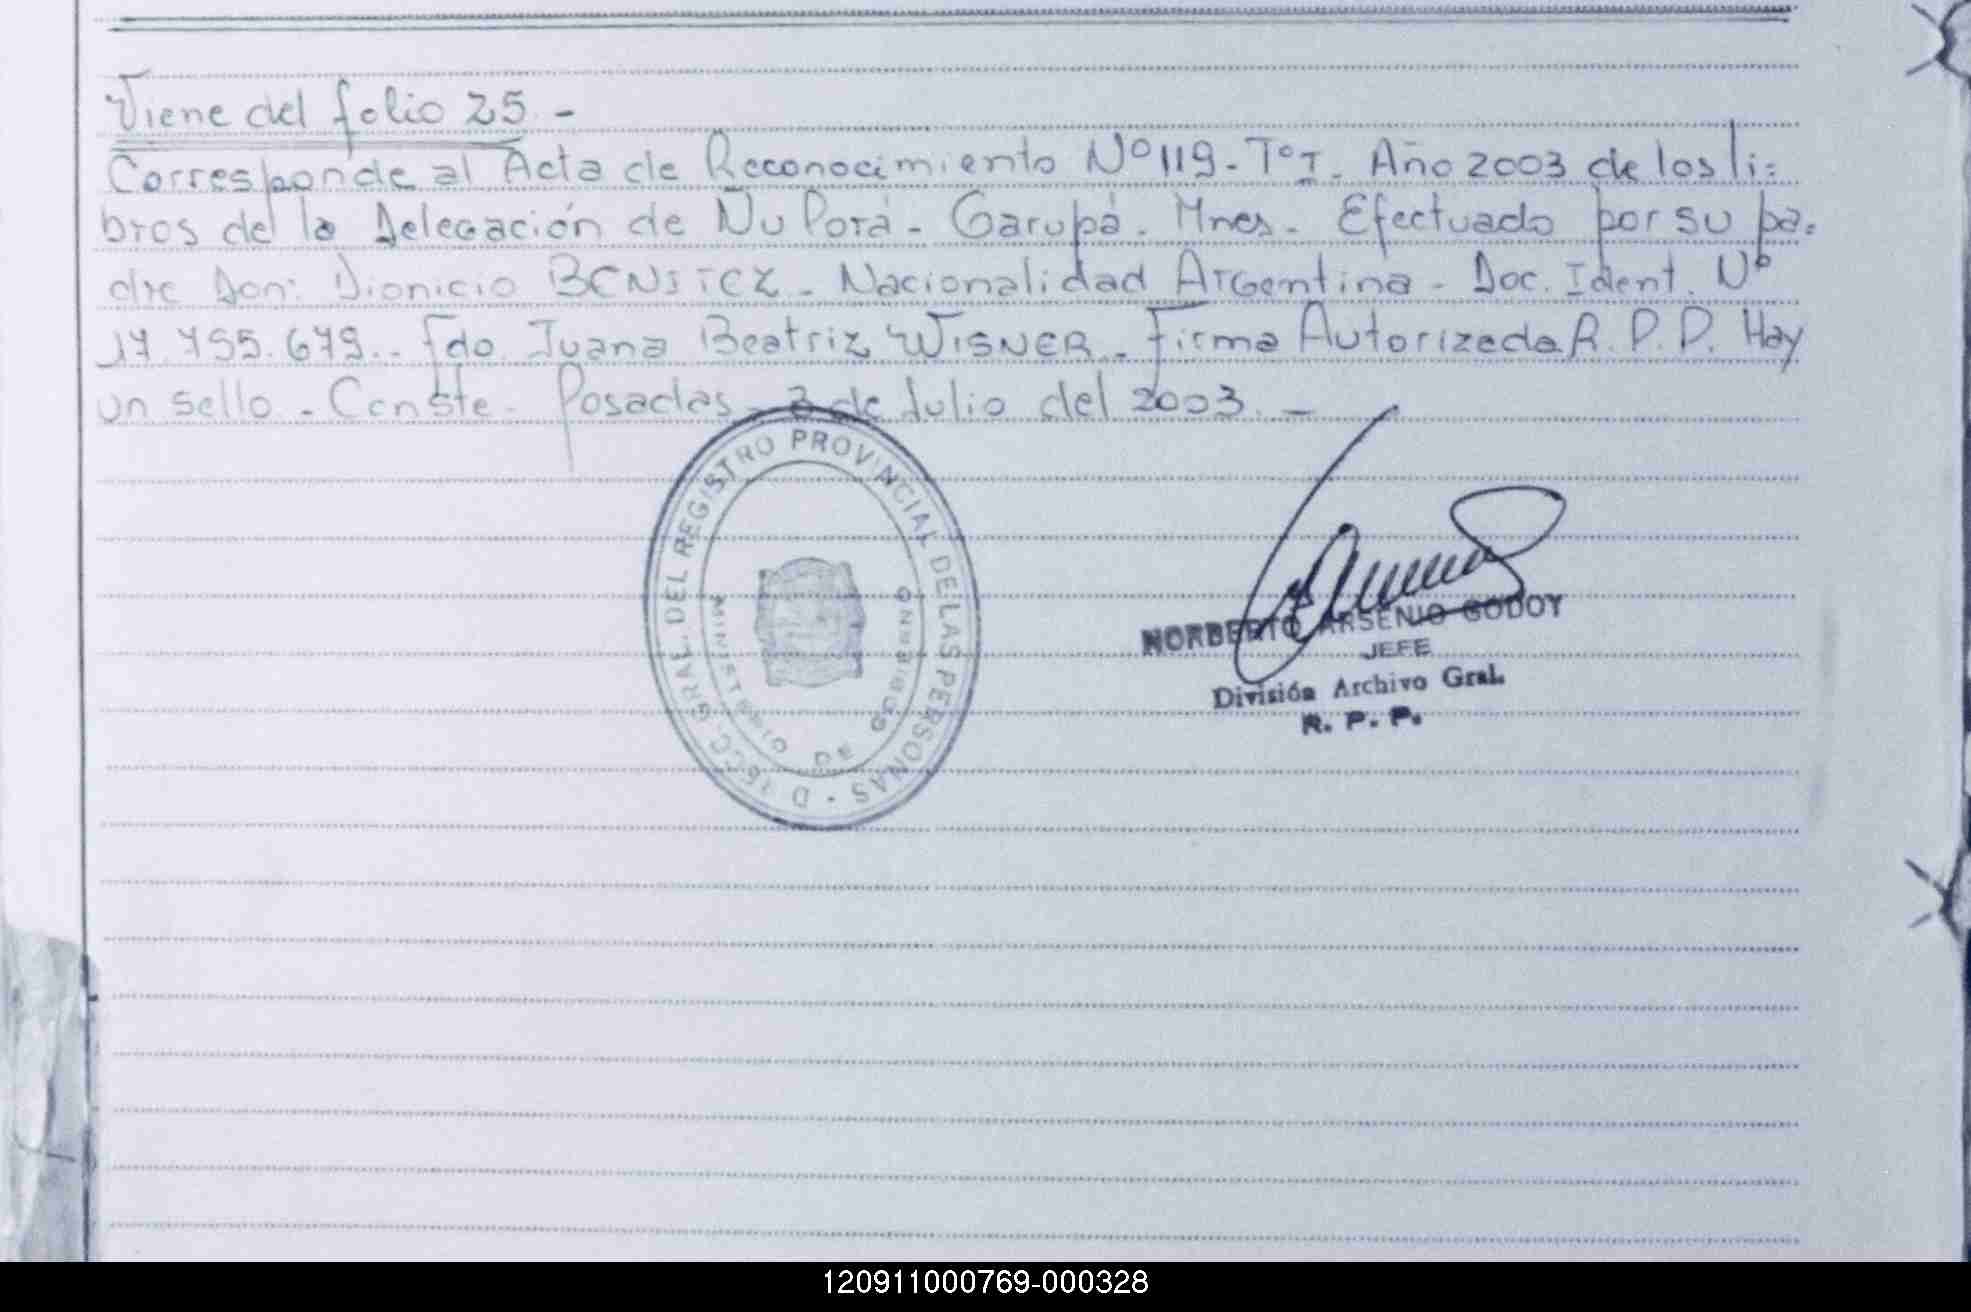 Viene del folio 25.-
Corresponde al Acta de Reconocimiento Nº 119-Tº I. Año 2003 de los li=
bros de la Delegación de Ñu Porá- Garupá. Mnes. Efectuado por su pa=
dre Don: Dionicio BENITEZ. Nacionalidad Argentina - Doc. Ident. Nº
17.755.679.- fdo. Juana Beatriz WISNER. Firma Autorizada R.P.P. Hay
un sello. Conste. Posadas, 3 de Julio del 2003.-
GRAL. DEL REGISTRO PROVINCIAL DE LAS PERSONAS
MINISTERIO DE GOBIERNO
NORBERTO ARSENIO GODOY
JEFE
División Archivo Gral.
R. P. P.
120911000769-000328